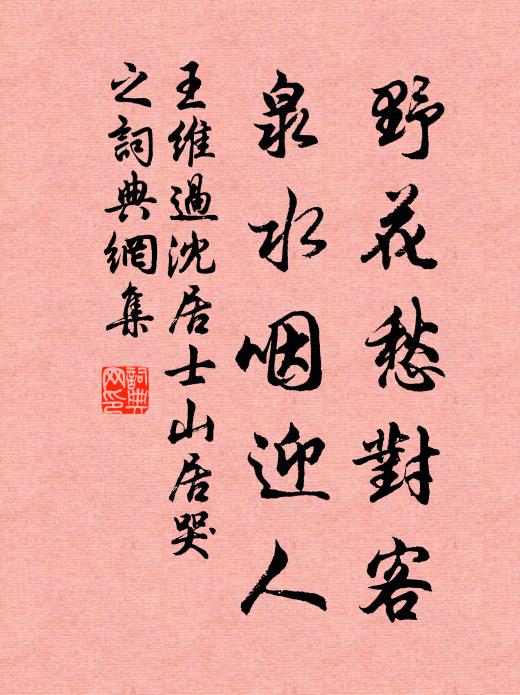 野花愁對客
泉水咽迎人
王維過沈居士山居哭
之詞典網集
詞典
网印